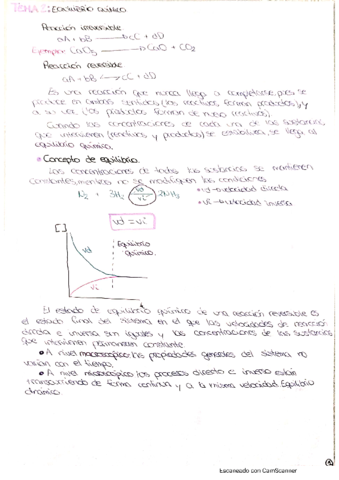 TEMA 5: EQUILIBRIO QUÍMICO
Reacción irreversible
aA + bB → cC + dD
Ejemplo: CaCO3 → CaO + CO2
Reacción reversible
aA + bB ↔ cC + dD
Es una reacción que nunca llega a completarse, pues se
produce en ambos sentidos (los reactivos forman productos) y
a su vez (los productos forman de nuevo reactivos)
Cuando las concentraciones de cada una de las sustancias
que intervienen (reactivos y productos) se estabiliza, se llega al
equilibrio químico.
• Concepto de equilibrio.
Las concentraciones de todas las sustancias se mantienen
constantes, mientras no se modifiquen las condiciones
N2 3H2 vd vi 2NH3
• vd = velocidad directa
• vi = velocidad inversa
vd = vi
[ ]
Equilibrio
químico
vd
vi
t
El estado de equilibrio químico de una reacción reversible es
el estado final del sistema en el que las velocidades de reacción
directa e inversa son iguales y las concentraciones de las sustancias
que intervienen permanecen constante.
• A nivel macroscópico: las propiedades generales del sistema no
varían con el tiempo.
• A nivel microscópico: los procesos directo e inverso están
transcurriendo de forma continua y a la misma velocidad. Equilibrio
dinámico.
Escaneado con CamScanner